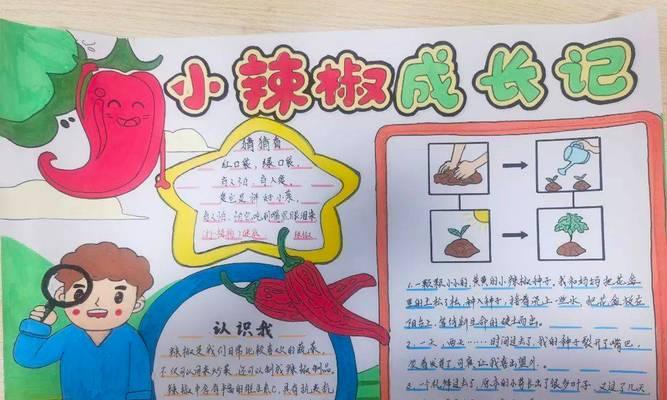 小辣椒成长记
猜猜看
红口袋,绿口袋,
有人怕,有人爱,
爱它是种好小菜,
有人怕,
(打一植物) 谜底 辣椒
认识我
辣椒是我们日常比较喜欢的蔬菜,
不仅可以用来炒菜,还可以制成辣椒制品
辣椒中含有丰富的维生素C,具有抗氧化
1.一颗颗小小的,黄黄的小辣椒种子。我和妈妈把花盆
里的土松了松,种入种子,接着浇上一些水,把花盆放在
阳台上,等待新生命的破土而出。
2.一天,两天……时间过去了,我的种子裂开了嘴巴,
3.个礼拜过去了,原来的小苗长出了很多叶子,又过了几天